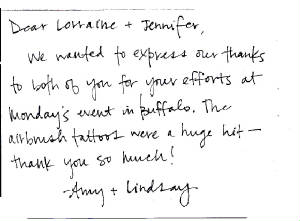 Dear Lorraine + Jennifer,
We wanted to express our thanks
to both of you for your efforts at
Monday's event in Buffalo. The
airbrush tattoos were a huge hit —
thank you so much!
-Amy + Lindsay